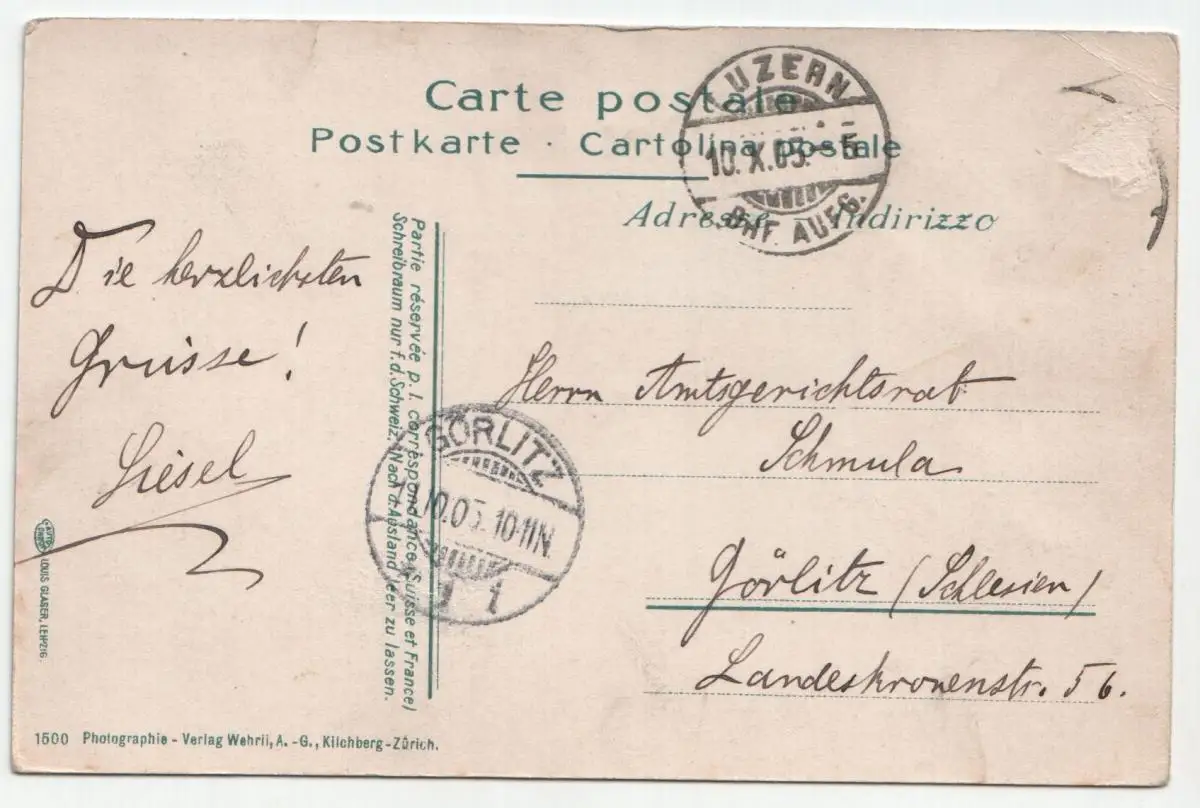 Carte postale
Postkarte · Cartolina postale
Adresse Indirizzo
LUZERN
10. X. 05. – 5
BHF. AUFG.
Partie réservée p. l. correspondance (Suisse et France)
Schreibraum nur f. d. Schweiz. Nach d. Ausland leer zu lassen.
Die herzlichsten
Grüsse!
Liesel
GÖRLITZ
10.05. 10-11N.
1
Herrn Amtsgerichtsrat
Schmula
Görlitz (Schlesien)
Landeskronenstr. 56.
LOUIS GLASER, LEIPZIG.
1500 Photographie - Verlag Wehrli, A. -G., Kilchberg - Zürich.